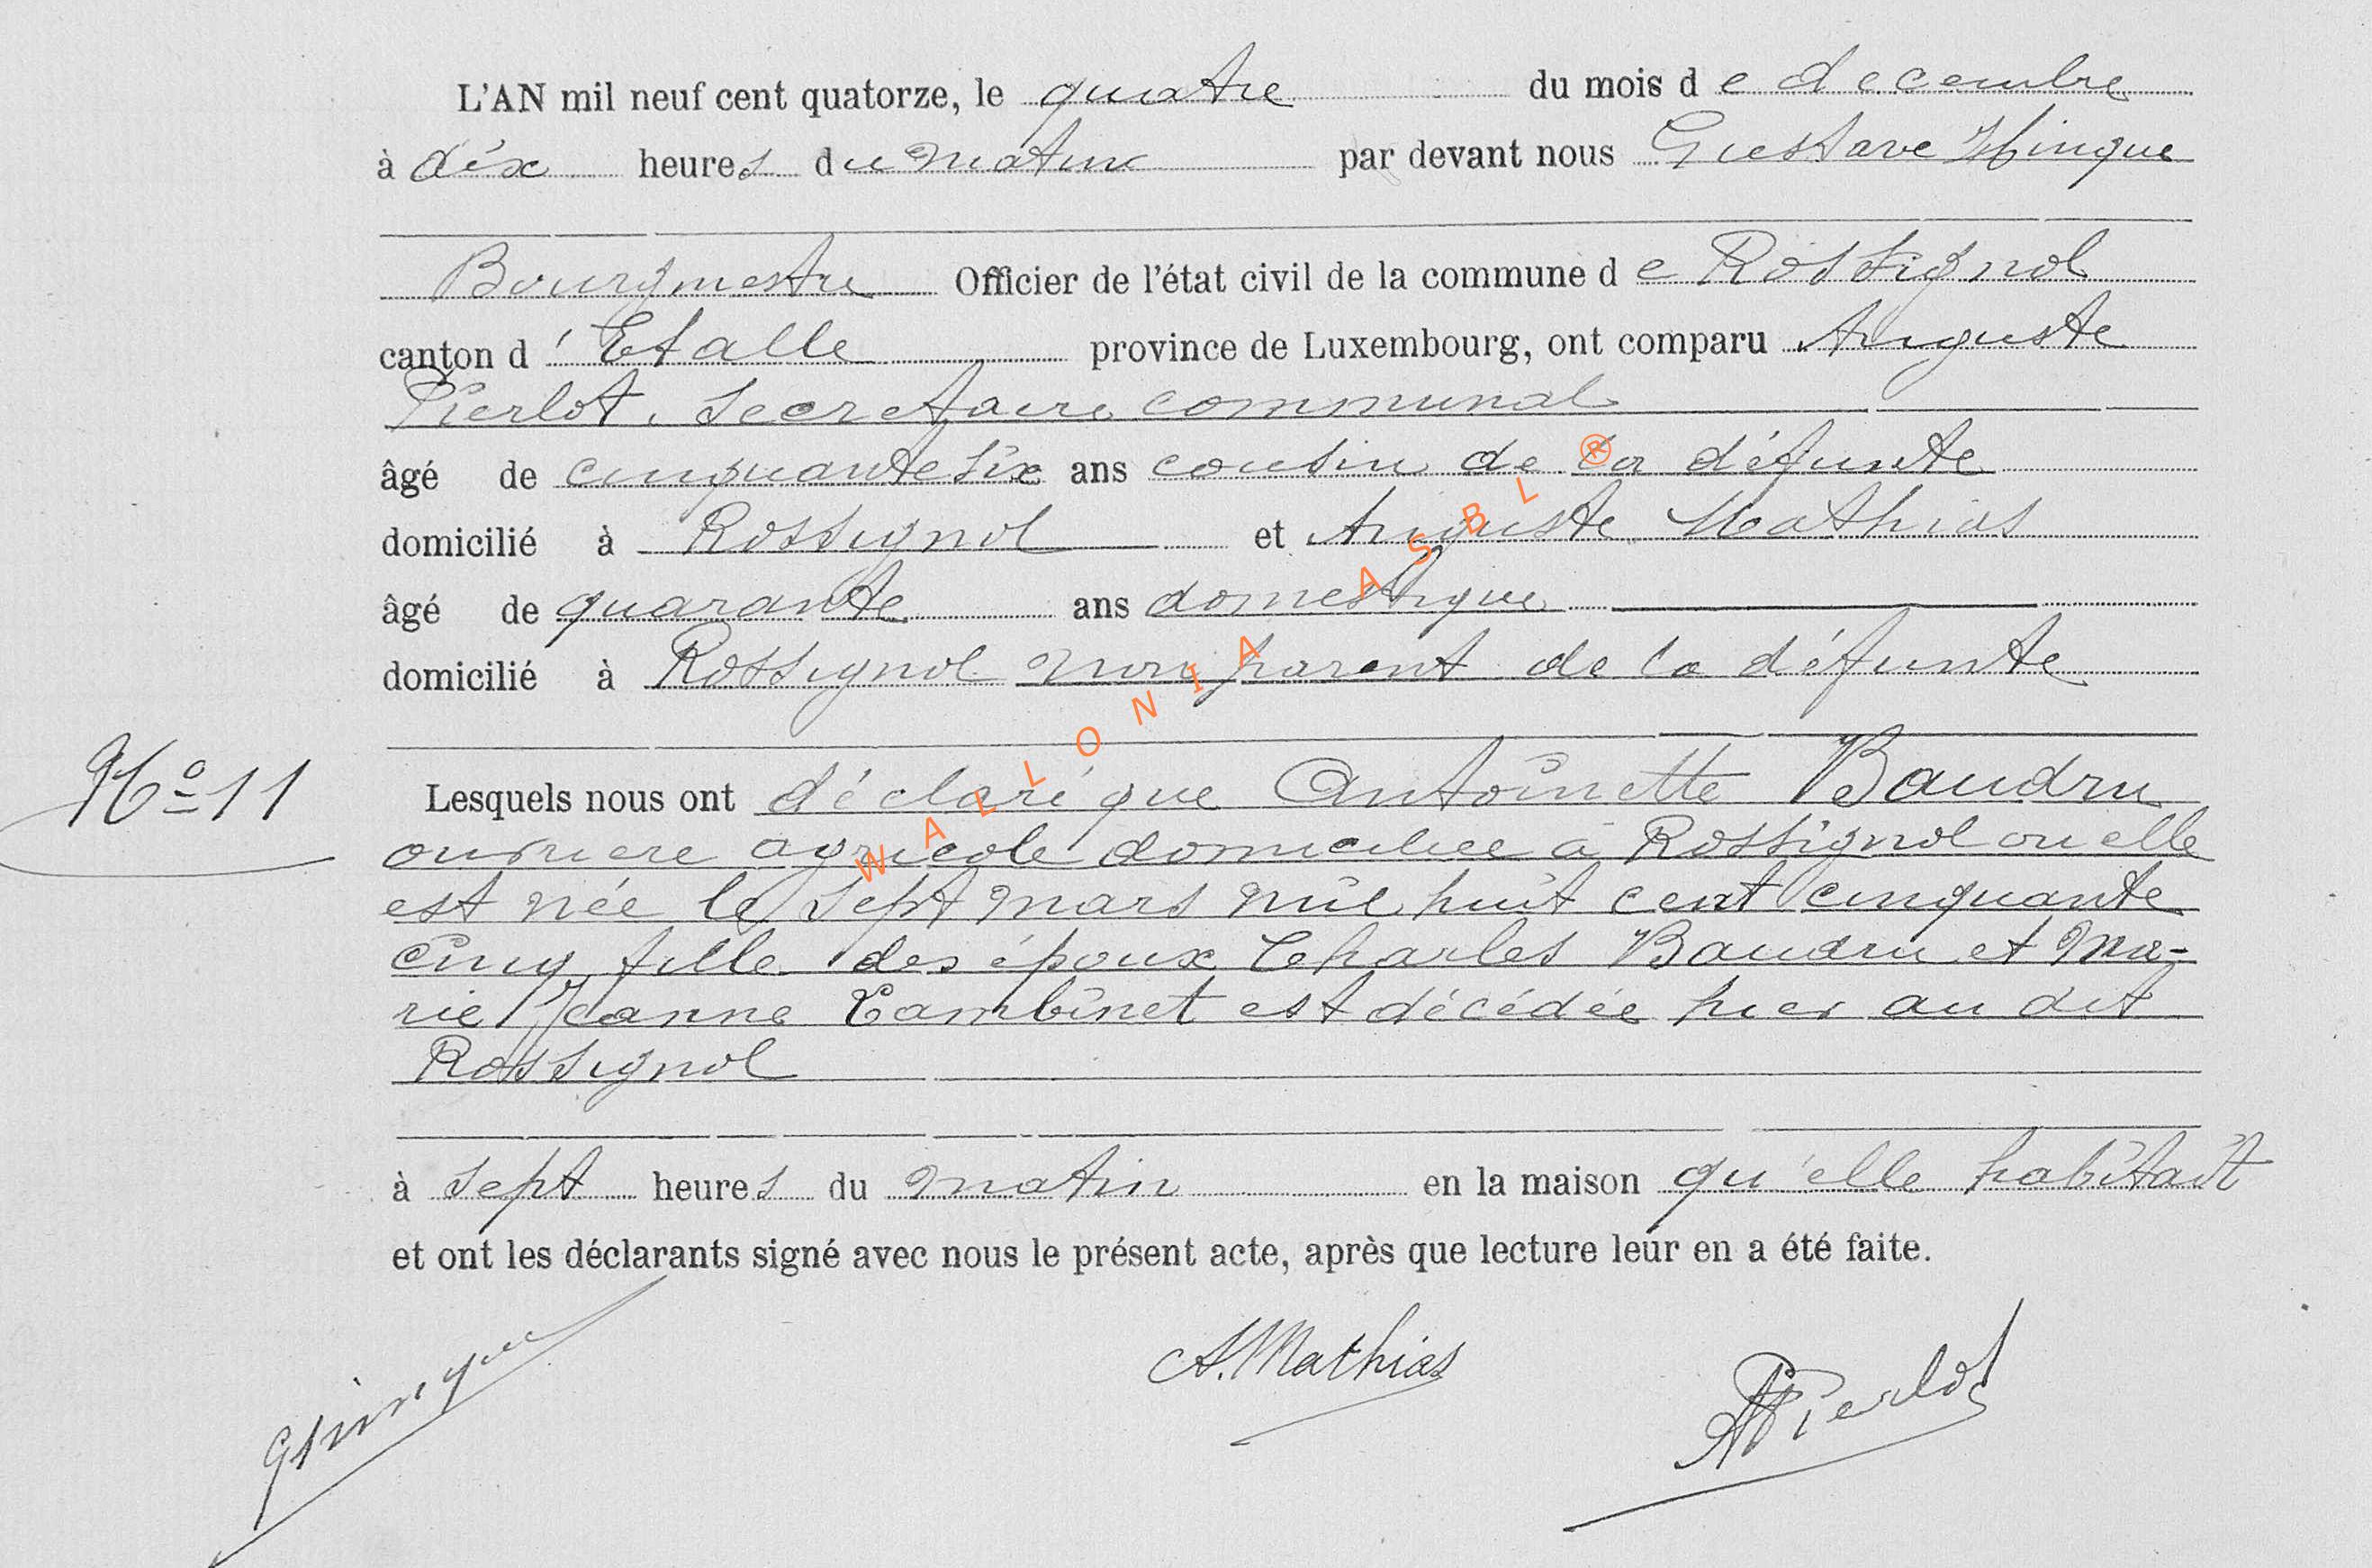 L'AN mil neuf cent quatorze, le quatre du mois de decembre
à dix heures du matin par devant nous Gustave Hinque
Bourgmestre Officier de l'état civil de la commune de Rossignol
canton d'Etalle province de Luxembourg, ont comparu Auguste
Pierlot, secretaire communal
âgé de cinquante six ans cousin de la défunte
domicilié à Rossignol et Auguste Mathias
âgé de quarante ans domestique
domicilié à Rossignol non parent de la défunte
No 11
Lesquels nous ont déclaré que Antoinette Baudru
ouvriere agricole domiciliee à Rossignol ou elle
est née le sept mars mil huit cent cinquante
cinq, fille des époux Charles Baudru et Ma-
rie Jeanne Cambinet est décédée hier au dit
Rossignol
à sept heures du matin en la maison qu'elle habitait
et ont les déclarants signé avec nous le présent acte, après que lecture leur en a été faite.
GHinque A. Mathias APierlot
WALLONIA ASBL ®